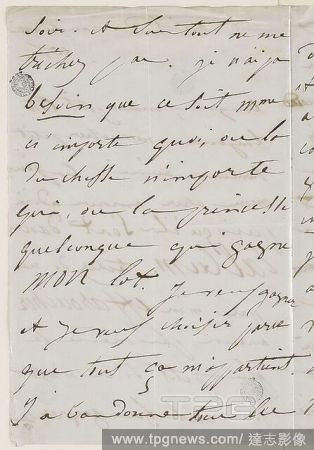 soir. et surtout ne me
trichez pas. je n'ai pas
besoin que ce soit mme
n'importe quoi, ou la
duchesse n'importe
qui, ou la princesse
quelconque qui gagne
MON lot. Je veux gagner
et Je veux choisir parce
que tout ça m'appartient.
J'abandonne
TPG
www.tpgnews.com / 達志影像